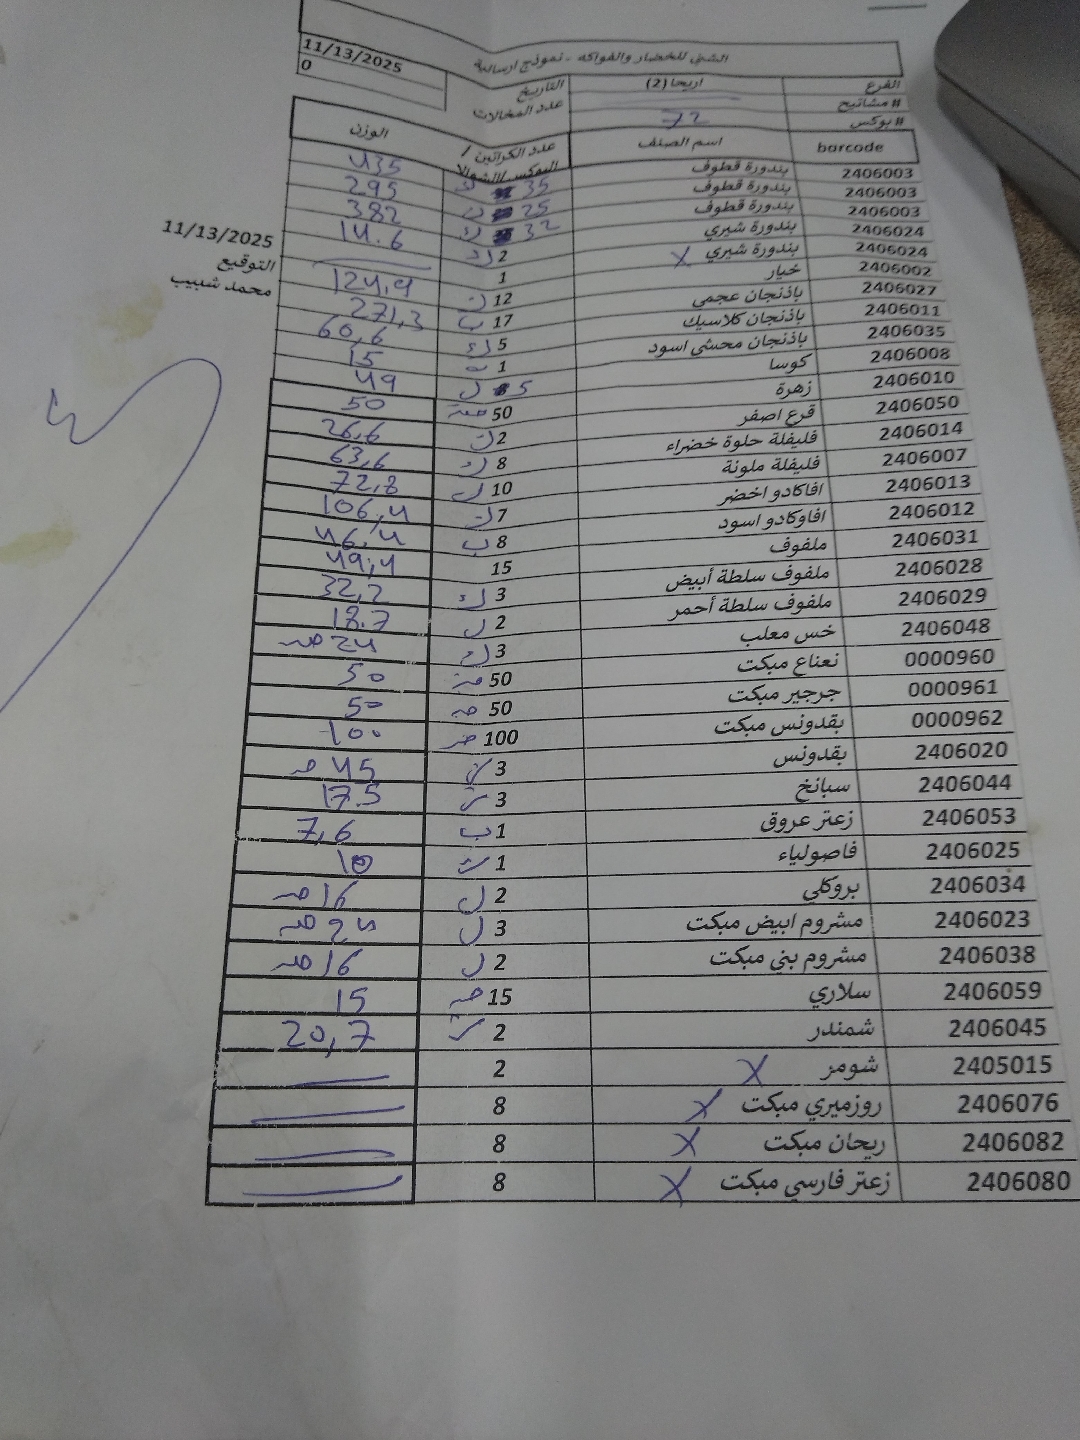 الشني للخضار والفواكه - نموذج ارسالية
الفرع اريحا (2) التاريخ 11/13/2025
# مشاتيح عدد المخالات 0
# بوكس 72
barcode اسم الصنف عدد الكراتين / البوكس/الشوال الوزن
2406003 بندورة قطوف 35 435
2406003 بندورة قطوف 25 295
2406003 بندورة قطوف 32 382
2406024 بندورة شيري 2 14.6
2406024 بندورة شيري X 1
2406002 خيار 12 124,9
2406027 باذنجان عجمي 17 271,3
2406011 باذنجان كلاسيك 5 60,6
2406035 باذنجان محشي اسود 1 15
2406008 كوسا 5 49
2406010 زهرة 50 50
2406050 قرع اصفر 2 26,6
2406014 فليفلة حلوة خضراء 8 63,6
2406007 فليفلة ملونة 10 72,8
2406013 افاكادو اخضر 7 106,4
2406012 افاوكادو اسود 8 46,4
2406031 ملفوف 15 49,4
2406028 ملفوف سلطة أبيض 3 32,2
2406029 ملفوف سلطة أحمر 2 18.7
2406048 خس معلب 3 24
0000960 نعناع مبكت 50 50
0000961 جرجير مبكت 50 50
0000962 بقدونس مبكت 100 100
2406020 بقدونس 3 45
2406044 سبانخ 3 17.5
2406053 زعتر عروق 1 7,6
2406025 فاصولياء 1 10
2406034 بروكلي 2 16
2406023 مشروم ابيض مبكت 3 24
2406038 مشروم بني مبكت 2 16
2406059 سلاري 15 15
2406045 شمندر 2 20,7
2405015 شومر X 2
2406076 روزميري مبكت X 8
2406082 ريحان مبكت X 8
2406080 زعتر فارسي مبكت X 8
11/13/2025
التوقيع
محمد شبيب